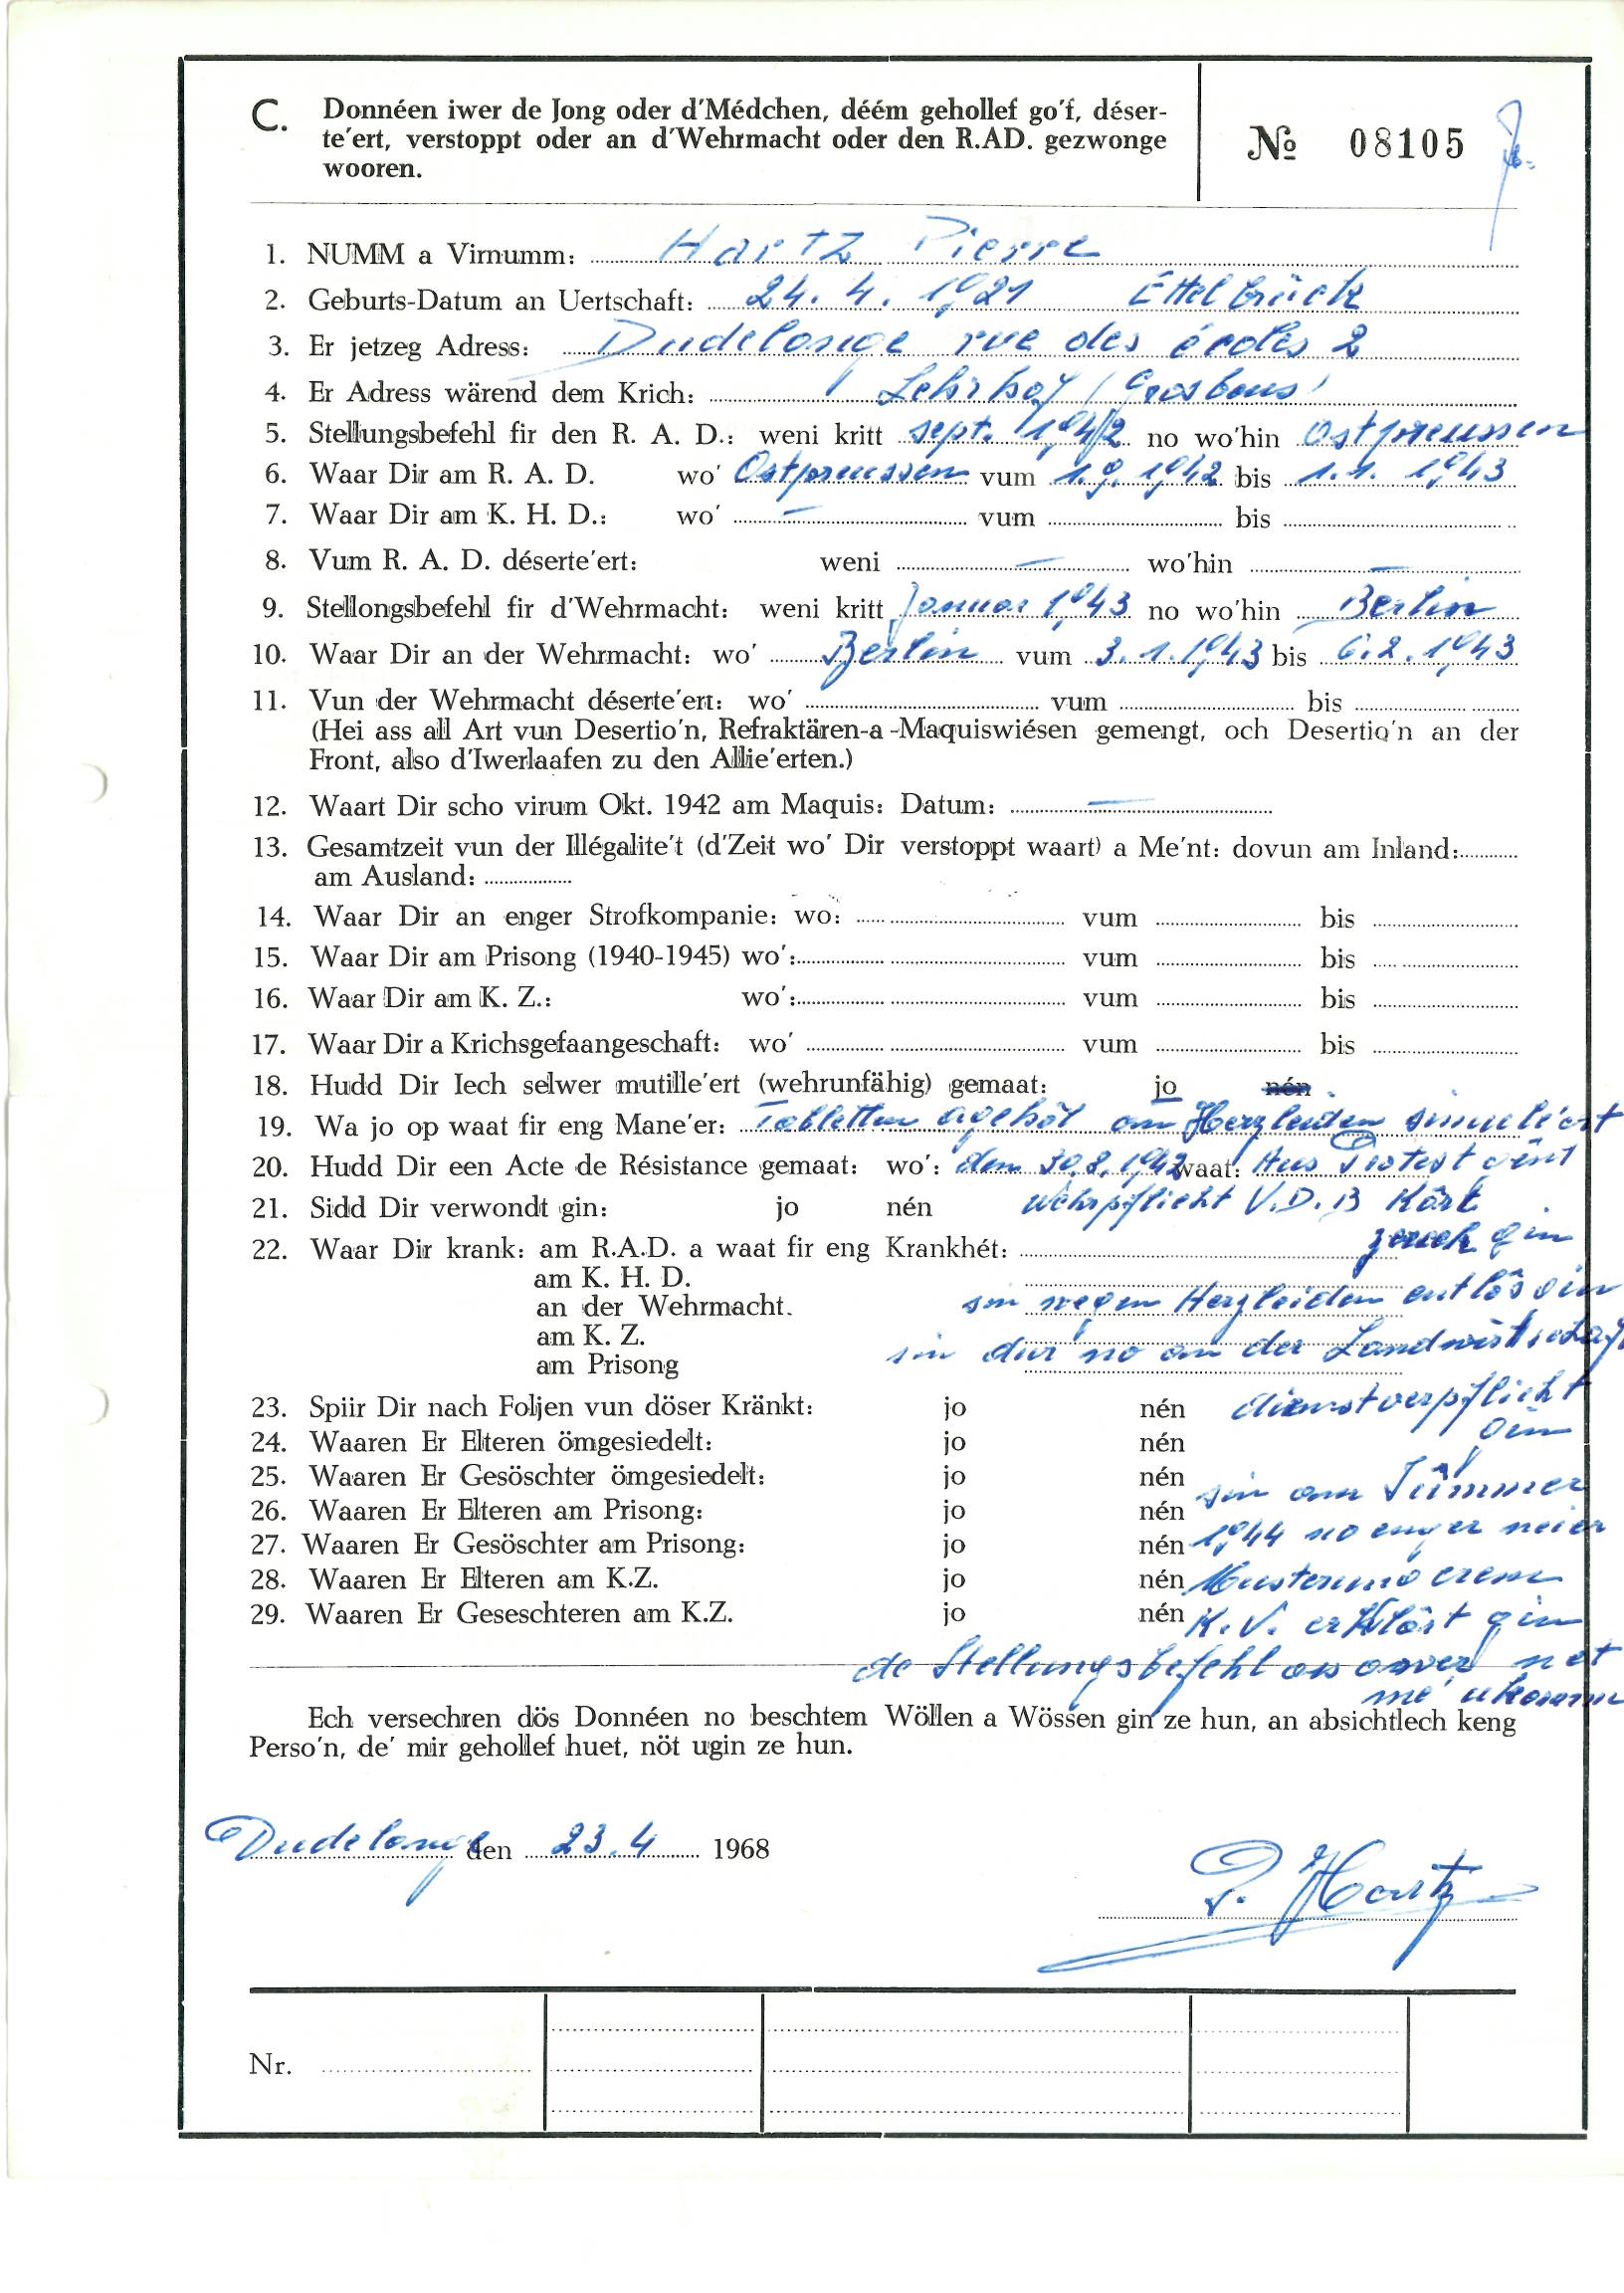 C. Donnéen iwer de Jong oder d'Médchen, déém gehollef go'f, déser-
te'ert, verstoppt oder an d'Wehrmacht oder den R.AD. gezwonge
wooren.
№ 08105
1. NUMM a Virnumm: Hartz Pierre
2. Geburts-Datum an Uertschaft: 24. 4. 1921 Ettelbrück
3. Er jetzeg Adress: Dudelange rue des écoles 2
4. Er Adress wärend dem Krich: Lehrhof / Grosbous
5. Stellungsbefehl fir den R. A. D.: weni kritt sept. 1942 no wo'hin Ostpreussen
6. Waar Dir am R. A. D. wo' Ostpreussen vum 1.9.1942 bis 1.1.1943
7. Waar Dir am K. H. D.: wo' — vum bis
8. Vum R. A. D. déserte'ert: weni — wo'hin —
9. Stellongsbefehl fir d'Wehrmacht: weni kritt Januar 1943 no wo'hin Berlin
10. Waar Dir an der Wehrmacht: wo' Berlin vum 3.1.1943 bis 6.2.1943
11. Vun der Wehrmacht déserte'ert: wo' vum bis
(Hei ass all Art vun Desertio'n, Refraktären-a-Maquiswiésen gemengt, och Desertio'n an der
Front, also d'Iwerlaafen zu den Allie'erten.)
12. Waart Dir scho virum Okt. 1942 am Maquis: Datum: —
13. Gesamtzeit vun der Illégalite't (d'Zeit wo' Dir verstoppt waart) a Me'nt: dovun am Inland:
am Ausland:
14. Waar Dir an enger Strofkompanie: wo: vum bis
15. Waar Dir am Prisong (1940-1945) wo': vum bis
16. Waar Dir am K. Z.: wo': vum bis
17. Waar Dir a Krichsgefaangeschaft: wo' vum bis
18. Hudd Dir Iech selwer mutille'ert (wehrunfähig) gemaat: jo nén
19. Wa jo op waat fir eng Mane'er: Tabletten ageholt an Herzleiden simuléert
20. Hudd Dir een Acte de Résistance gemaat: wo': den 30.8.1942 waat: Aus Protest
21. Sidd Dir verwondt gin: jo nén Wehrpflicht V.D.B Kârt
22. Waar Dir krank: am R.A.D. a waat fir eng Krankhét: zereck gin
am K. H. D.
an der Wehrmacht. sin wegen Herzleiden entlôs gin
am K. Z.
am Prisong sin dur no an der Landwirtschaft
23. Spiir Dir nach Foljen vun döser Kränkt: jo nén dienstverpflicht
gin
24. Waaren Er Elteren ömgesiedelt: jo nén
25. Waaren Er Gesöschter ömgesiedelt: jo nén sin am
26. Waaren Er Elteren am Prisong: jo nén
27. Waaren Er Gesöschter am Prisong: jo nén 1944 no enger neier
28. Waaren Er Elteren am K.Z. jo nén Musterung
29. Waaren Er Geseschteren am K.Z. jo nén K.V. erklärt gin
de Stellungsbefehl as awer net
mé ukomm
Ech versechren dös Donnéen no beschtem Wöllen a Wössen gin ze hun, an absichtlech keng
Perso'n, de' mir gehollef huet, nöt ugin ze hun.
Dudelange den 23.4 1968
P. Hartz
Nr.